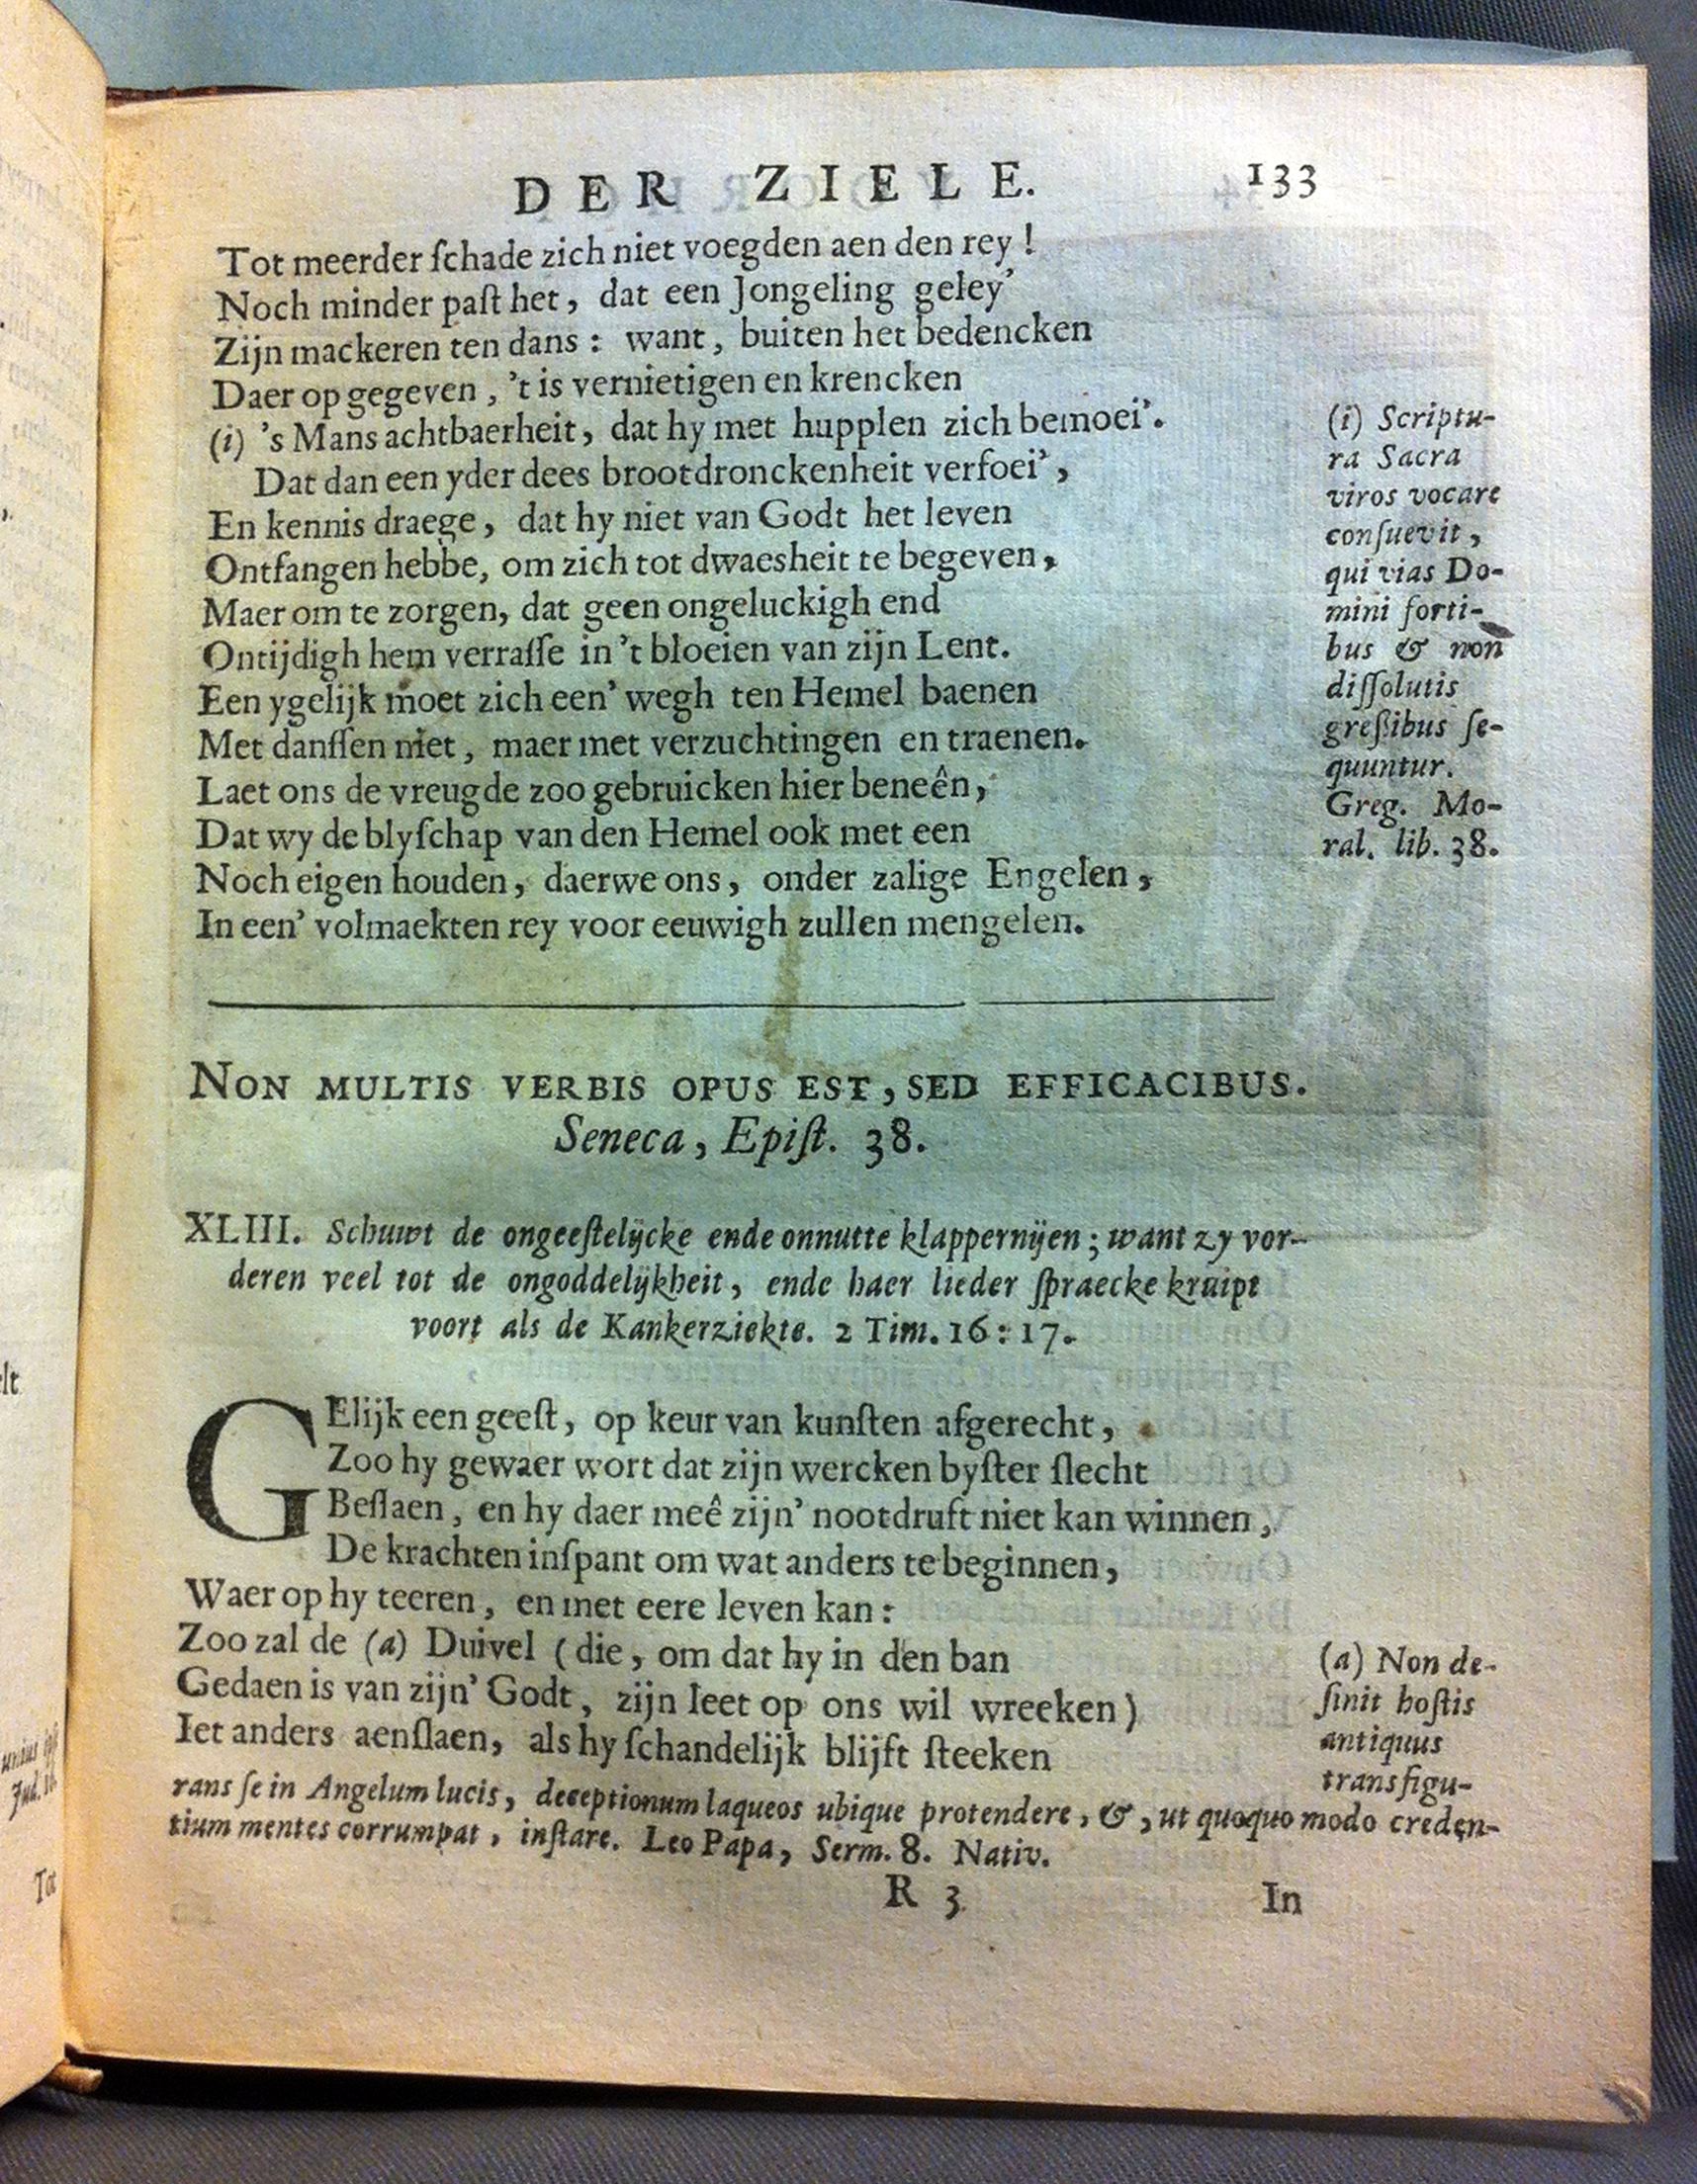 DER ZIELE. 133
Tot meerder ſchade zich niet voegden aen den rey!
Noch minder paſt het, dat een Jongeling geley'
Zijn mackeren ten dans: want, buiten het bedencken
Daer op gegeven, 't is vernietigen en krencken
(i) 's Mans achtbaerheit, dat hy met hupplen zich bemoei'.
Dat dan een yder dees brootdronckenheit verfoei',
En kennis draege, dat hy niet van Godt het leven
Ontfangen hebbe, om zich tot dwaesheit te begeven,
Maer om te zorgen, dat geen ongeluckigh end
Ontijdigh hem verraſſe in 't bloeien van zijn Lent.
Een ygelijk moet zich een' wegh ten Hemel baenen
Met danſſen niet, maer met verzuchtingen en traenen.
Laet ons de vreugde zoo gebruicken hier beneên,
Dat wy de blyſchap van den Hemel ook met een
Noch eigen houden, daerwe ons, onder zalige Engelen,
In een' volmaekten rey voor eeuwigh zullen mengelen.
(i) Scriptu-
ra Sacra
viros vocare
conſuevit,
qui vias Do-
mini forti-
bus & non
diſſolutis
greßibus ſe-
quuntur.
Greg. Mo-
ral. lib. 38.
NON MULTIS VERBIS OPUS EST, SED EFFICACIBUS.
Seneca, Epiſt. 38.
XLIII. Schuwt de ongeeſtelijcke ende onnutte klappernijen; want zy vor-
deren veel tot de ongoddelijkheit, ende haer lieder ſpraecke kruipt
voort als de Kankerziekte. 2 Tim. 16: 17.
GElijk een geeſt, op keur van kunſten afgerecht,
Zoo hy gewaer wort dat zijn wercken byſter ſlecht
Beſlaen, en hy daer meê zijn' nootdruft niet kan winnen,
De krachten inſpant om wat anders te beginnen,
Waer op hy teeren, en met eere leven kan:
Zoo zal de (a) Duivel (die, om dat hy in den ban
Gedaen is van zijn' Godt, zijn leet op ons wil wreeken)
Iet anders aenſlaen, als hy ſchandelijk blijft ſteeken
(a) Non de-
ſinit hoſtis
antiquus
transfigu-
rans ſe in Angelum lucis, deceptionum laqueos ubique protendere, &, ut quoquo modo creden-
tium mentes corrumpat, inſtare. Leo Papa, Serm. 8. Nativ.
R 3 In